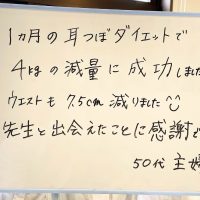 1ヵ月の耳つぼダイエットで
4kgの減量に成功しまし
ウエストも7.5cm減りました
先生と出会えたことに感謝で
50代 主婦